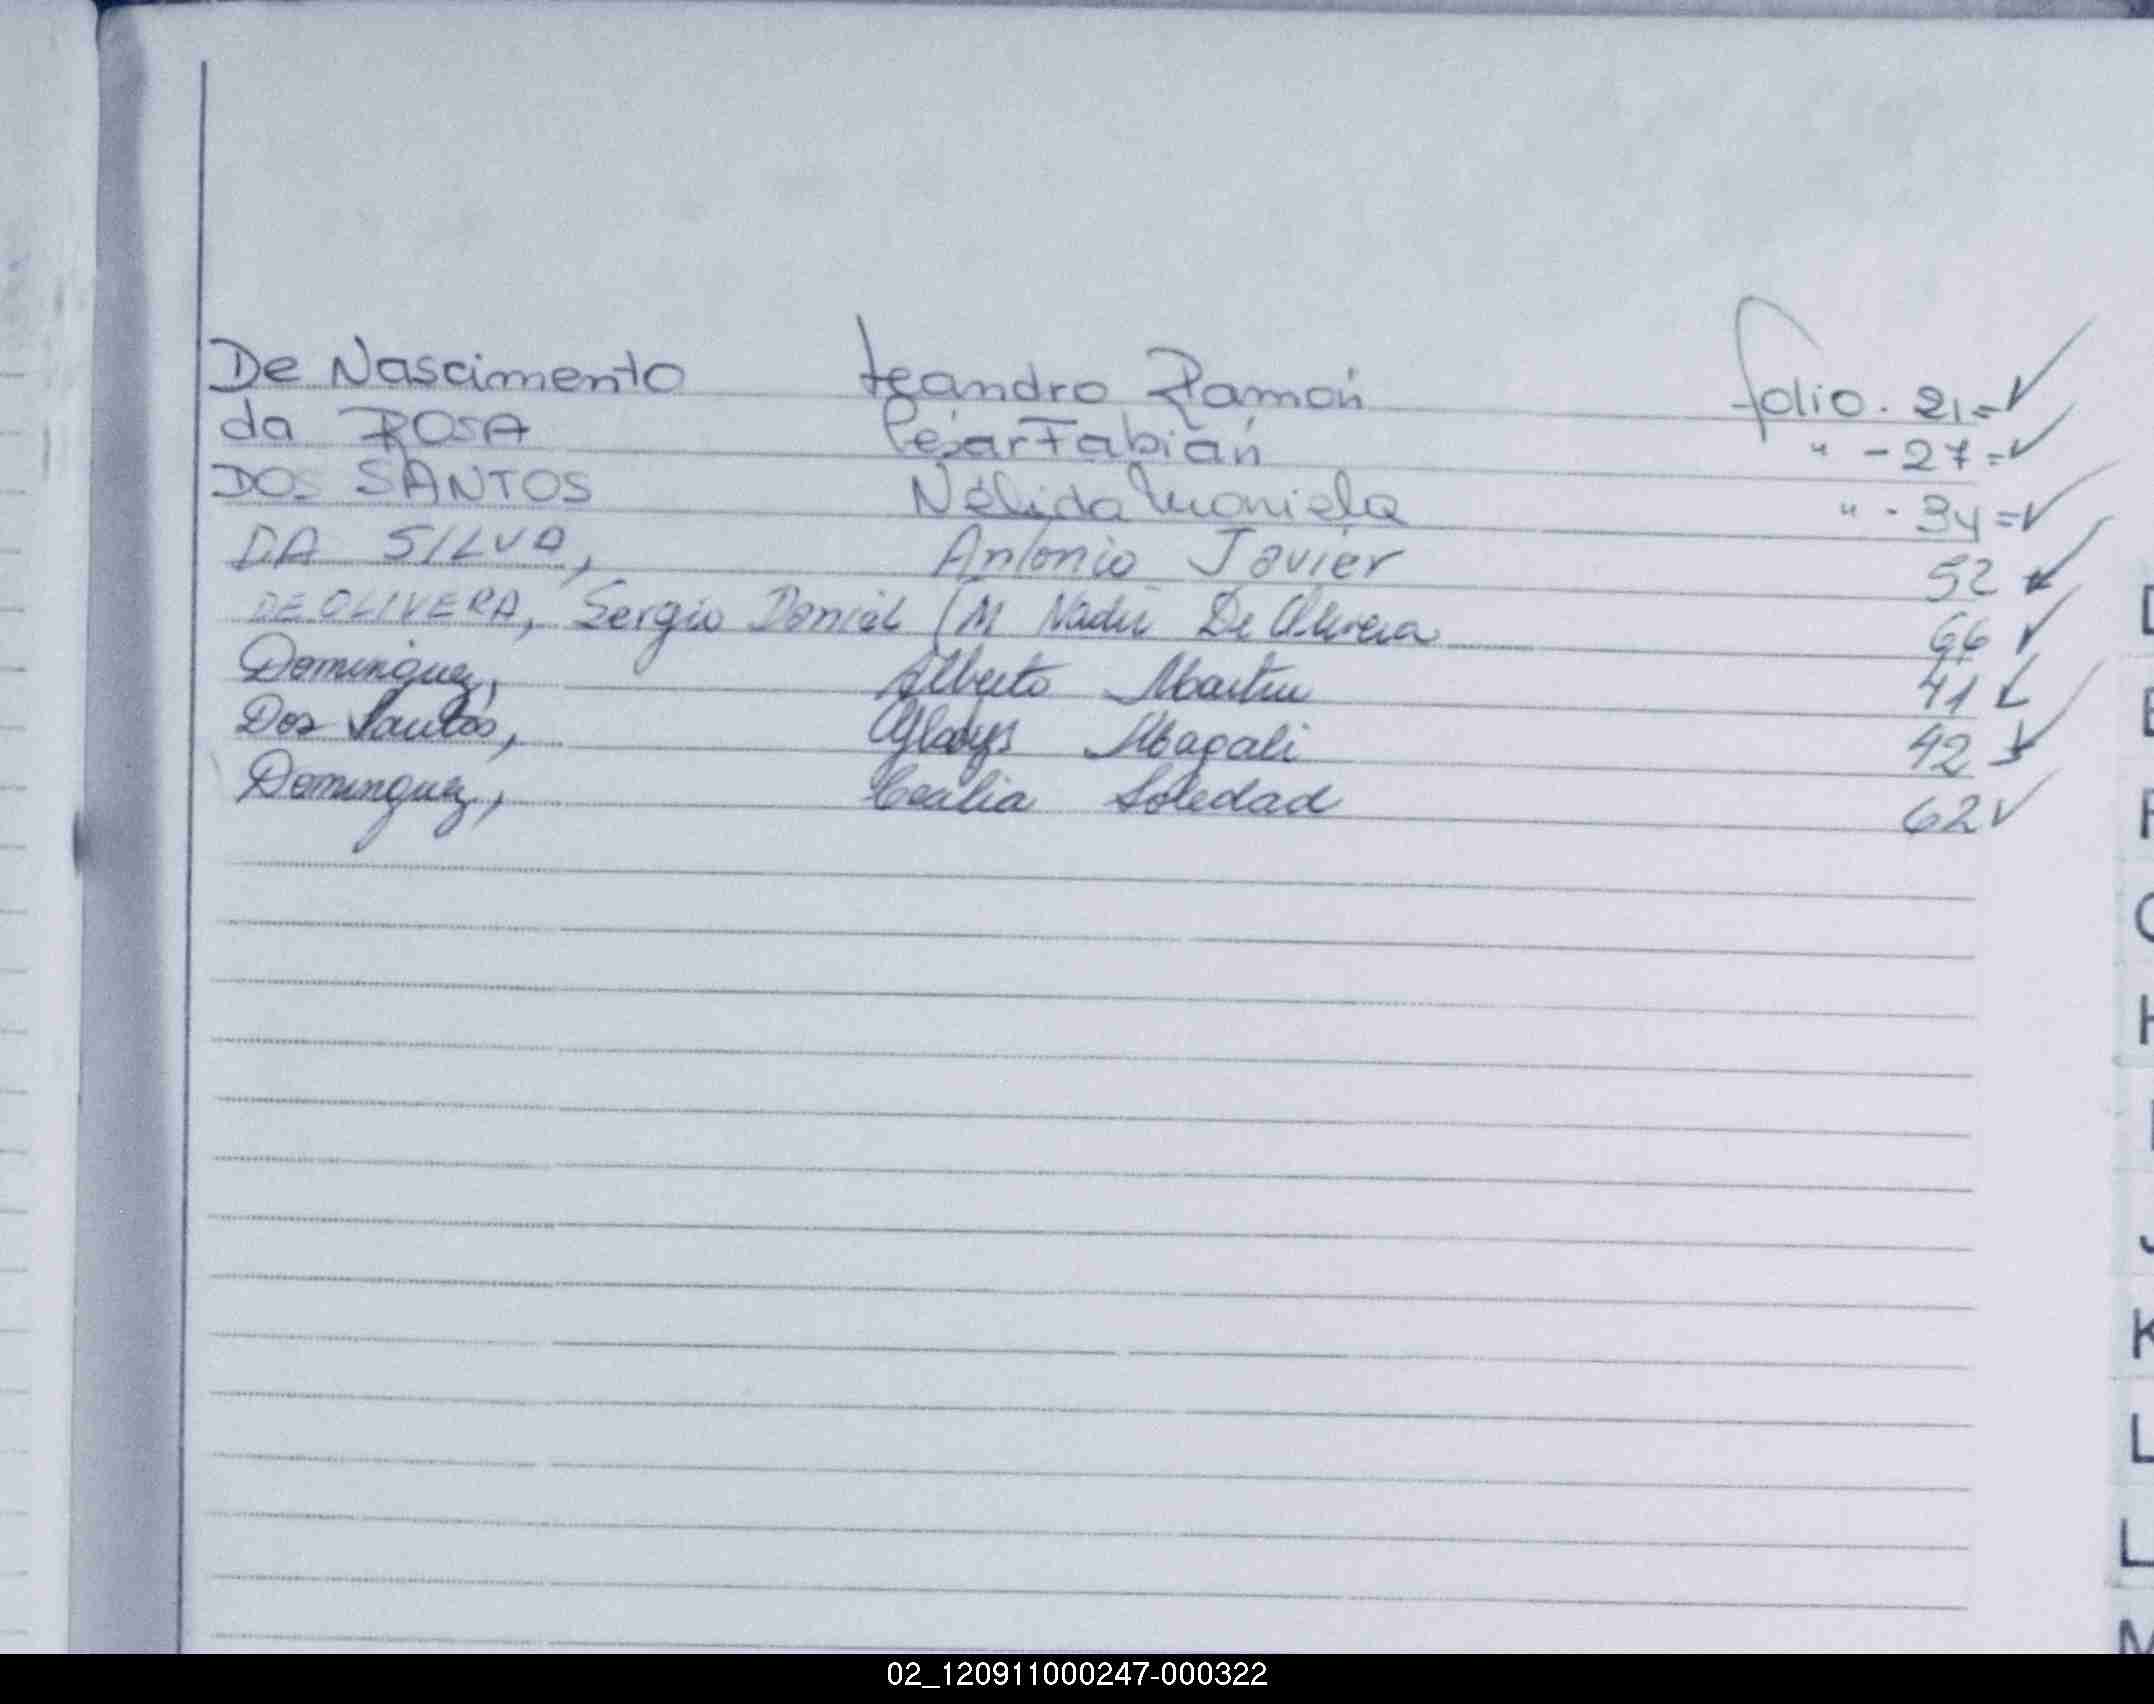 De Nascimento Leandro Ramón folio. 21=✓
da ROSA César Fabián " - 27=✓
DOS SANTOS Nélida Mariela " - 34=✓
DA SILVA, Antonio Javier 52 ✓
DE OLIVERA, Sergio Daniel (M Nadir De Olivera 66 ✓
Dominguez, Alberto Martin 41 ✓
Dos Santos, Gladys Magali 42 ✓
Dominguez, Cecilia Soledad 62 ✓
K
L
M
02_120911000247-000322